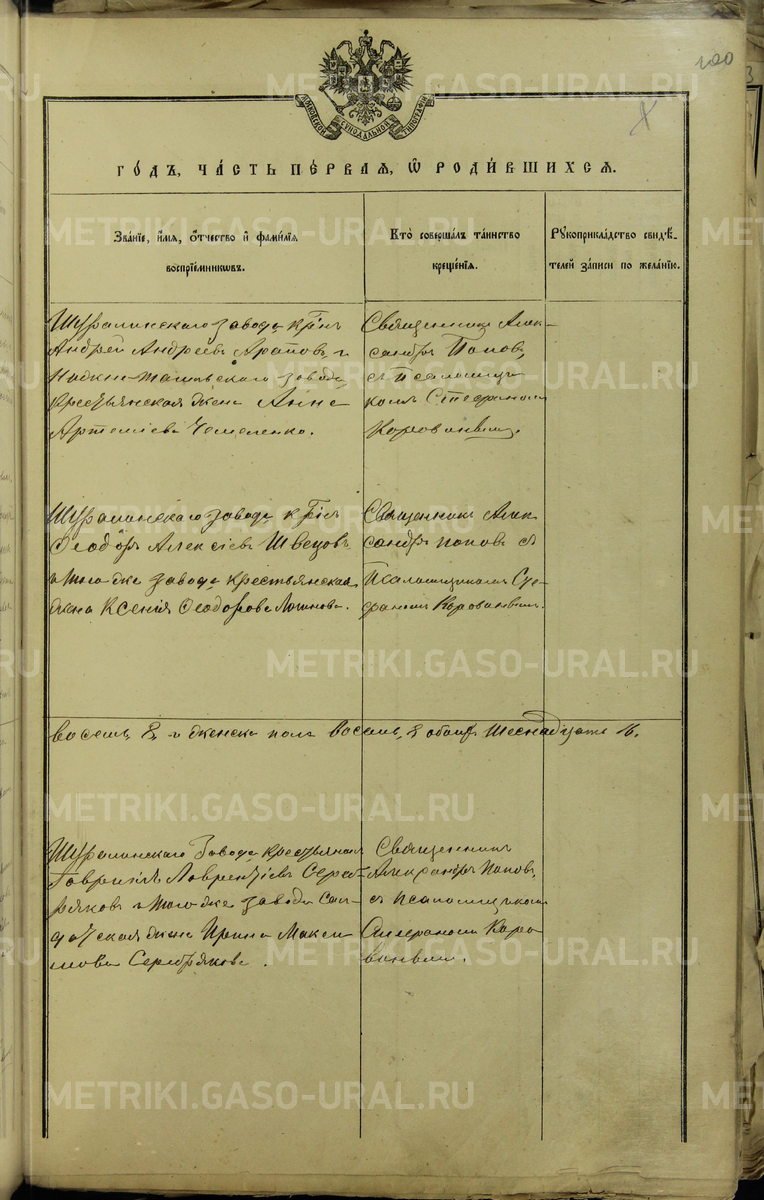 100
МОСКОВСКОЙ СѴНОДАЛЬНОЙ ТИПОГРАФІИ
ГО́ДЪ, ЧА́СТЬ ПЕ́РВАЯ, Ѡ҆ РОДИ́ВШИХСЯ.
Зва́нїе, и҆́мя, ѻ҆́тчество и҆ фами́лїя
воспрїе́мниковъ.
Кто̀ соверша́лъ та́инство
креще́нїя.
Рꙋкоприкла́дство свидѣ́-
телей за́писи по жела́нїю.
Шуралинскаго завода кр̃нъ
Андрей Андреевъ Араповъ и
завода
крестьянская жена Анна
Артемiева
Священникъ Алек-
сандръ Поповъ,
съ псаломщи-
комъ Стефаномъ
Шуралинскаго завода кр̃нъ
Ѳеодоръ Алексiевъ Швецовъ
и того же завода крестьянская
жена Ксенiя Ѳеодорова Логинова.
Священникъ Алек-
сандръ Поповъ съ
Псаломщикомъ Сте-
фаномъ
восемь, 8, и женска пола восемь, 8 обоихъ шестнадцать 16.
Шуралинскаго Завода крестьянинъ
Гаврiилъ Лаврентiевъ Сереб-
ряковъ и того же завода Сол-
датская жена Ирина Макси-
мова Серебрякова.
Священникъ
Александръ Поповъ,
съ псаломщикомъ
Стефаномъ
METRIKI.GASO-URAL.RU